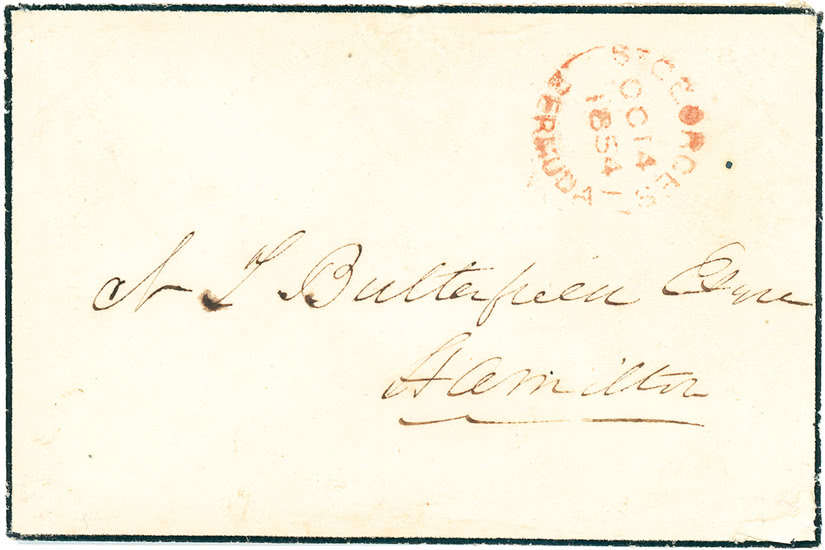 ST GEORGES
BERMUDA
OC 14
1854
N T Butterfield Esqre
Hamilton